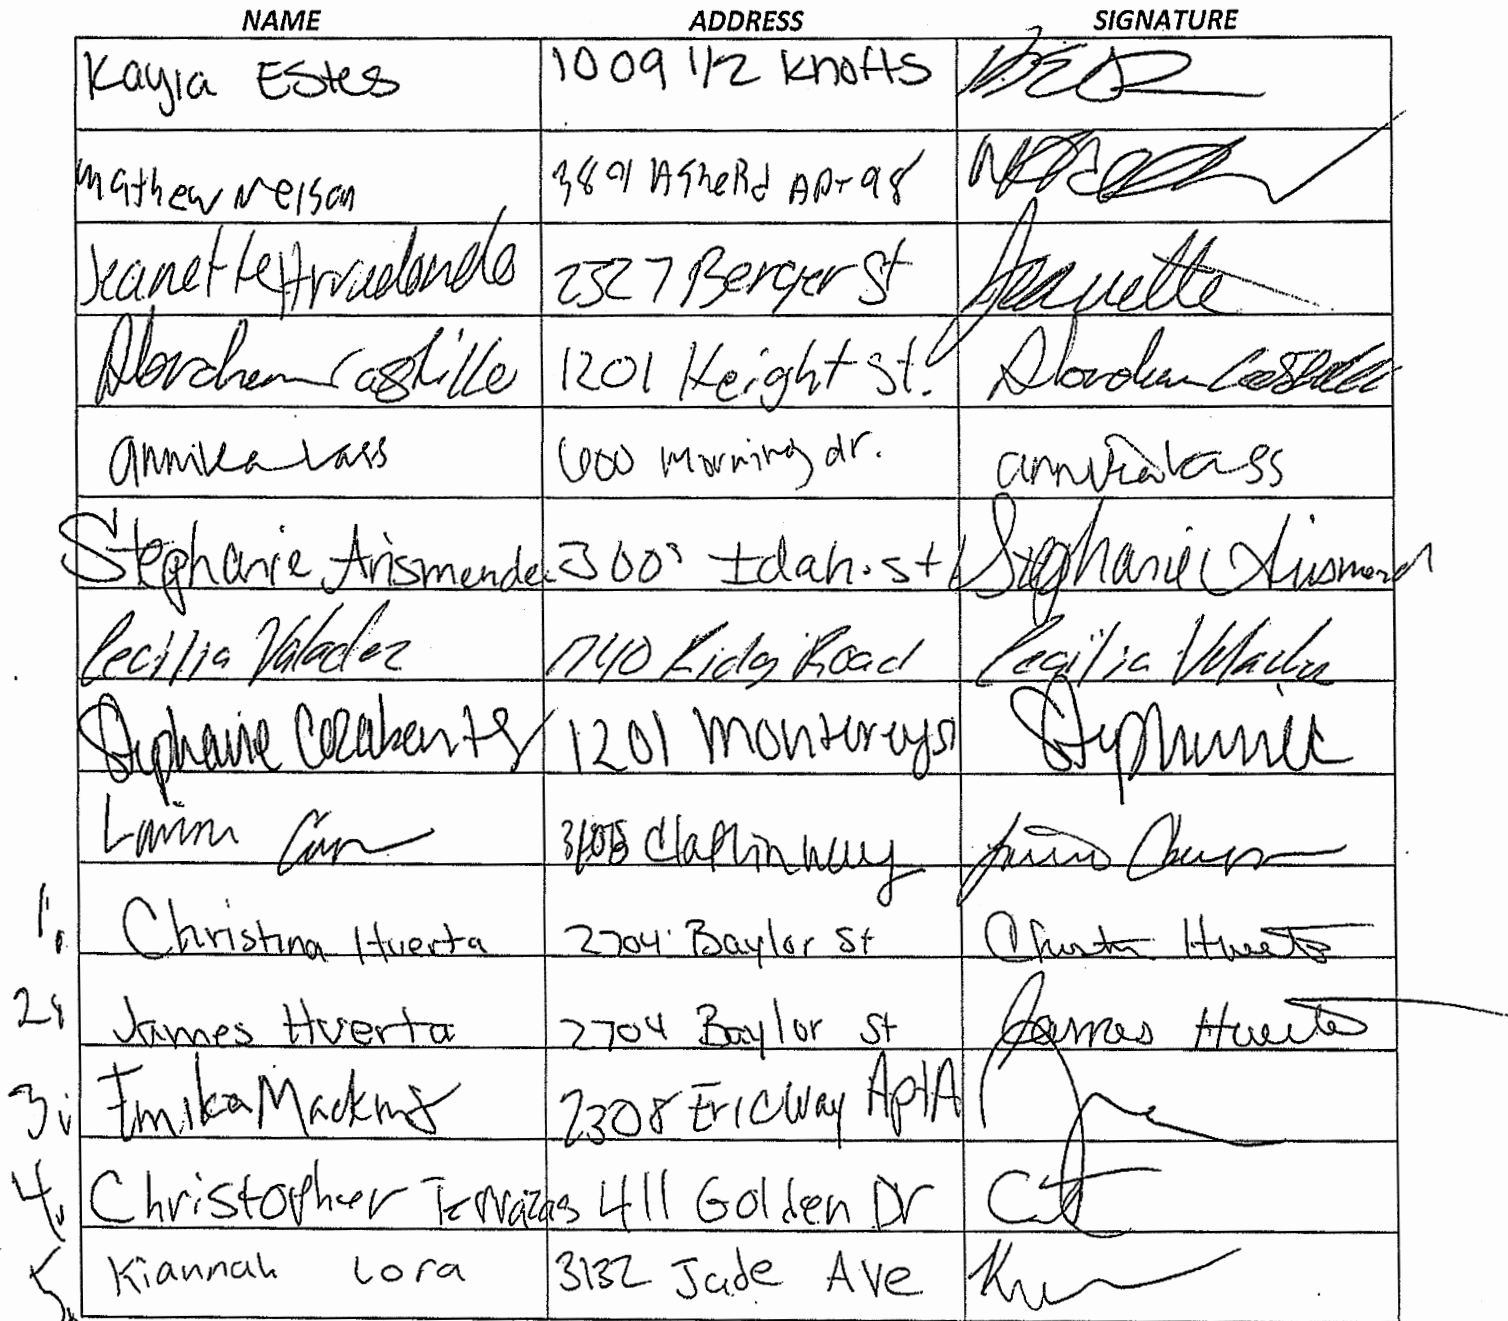 NAME ADDRESS SIGNATURE
Kayla Estes 1009 1/2 Knotts
Mathew Nelson 3891 Ashe Rd Apt 98
Jeanette Arredondo 2327 Berger St Jeanette
Abraham Castillo 1201 Height St. Abraham Castillo
annika Lass 600 Morning dr. annika Lass
Stephanie Arismendez 300 Idaho St Stephanie Arismend
Cecilia Valadez 1740 Ridg Road Cecilia Valadez
Stephanie 1201 Monterey St Stephanie
Claflin Way
1. Christina Huerta 2704 Baylor St Christina Huerta
2. James Huerta 2704 Baylor St James Huerta
3. Emika 2308 Eric Way Apt A
4. Christopher Terrazas 411 Golden Dr CT
5. Kiannah Lora 3132 Jade Ave